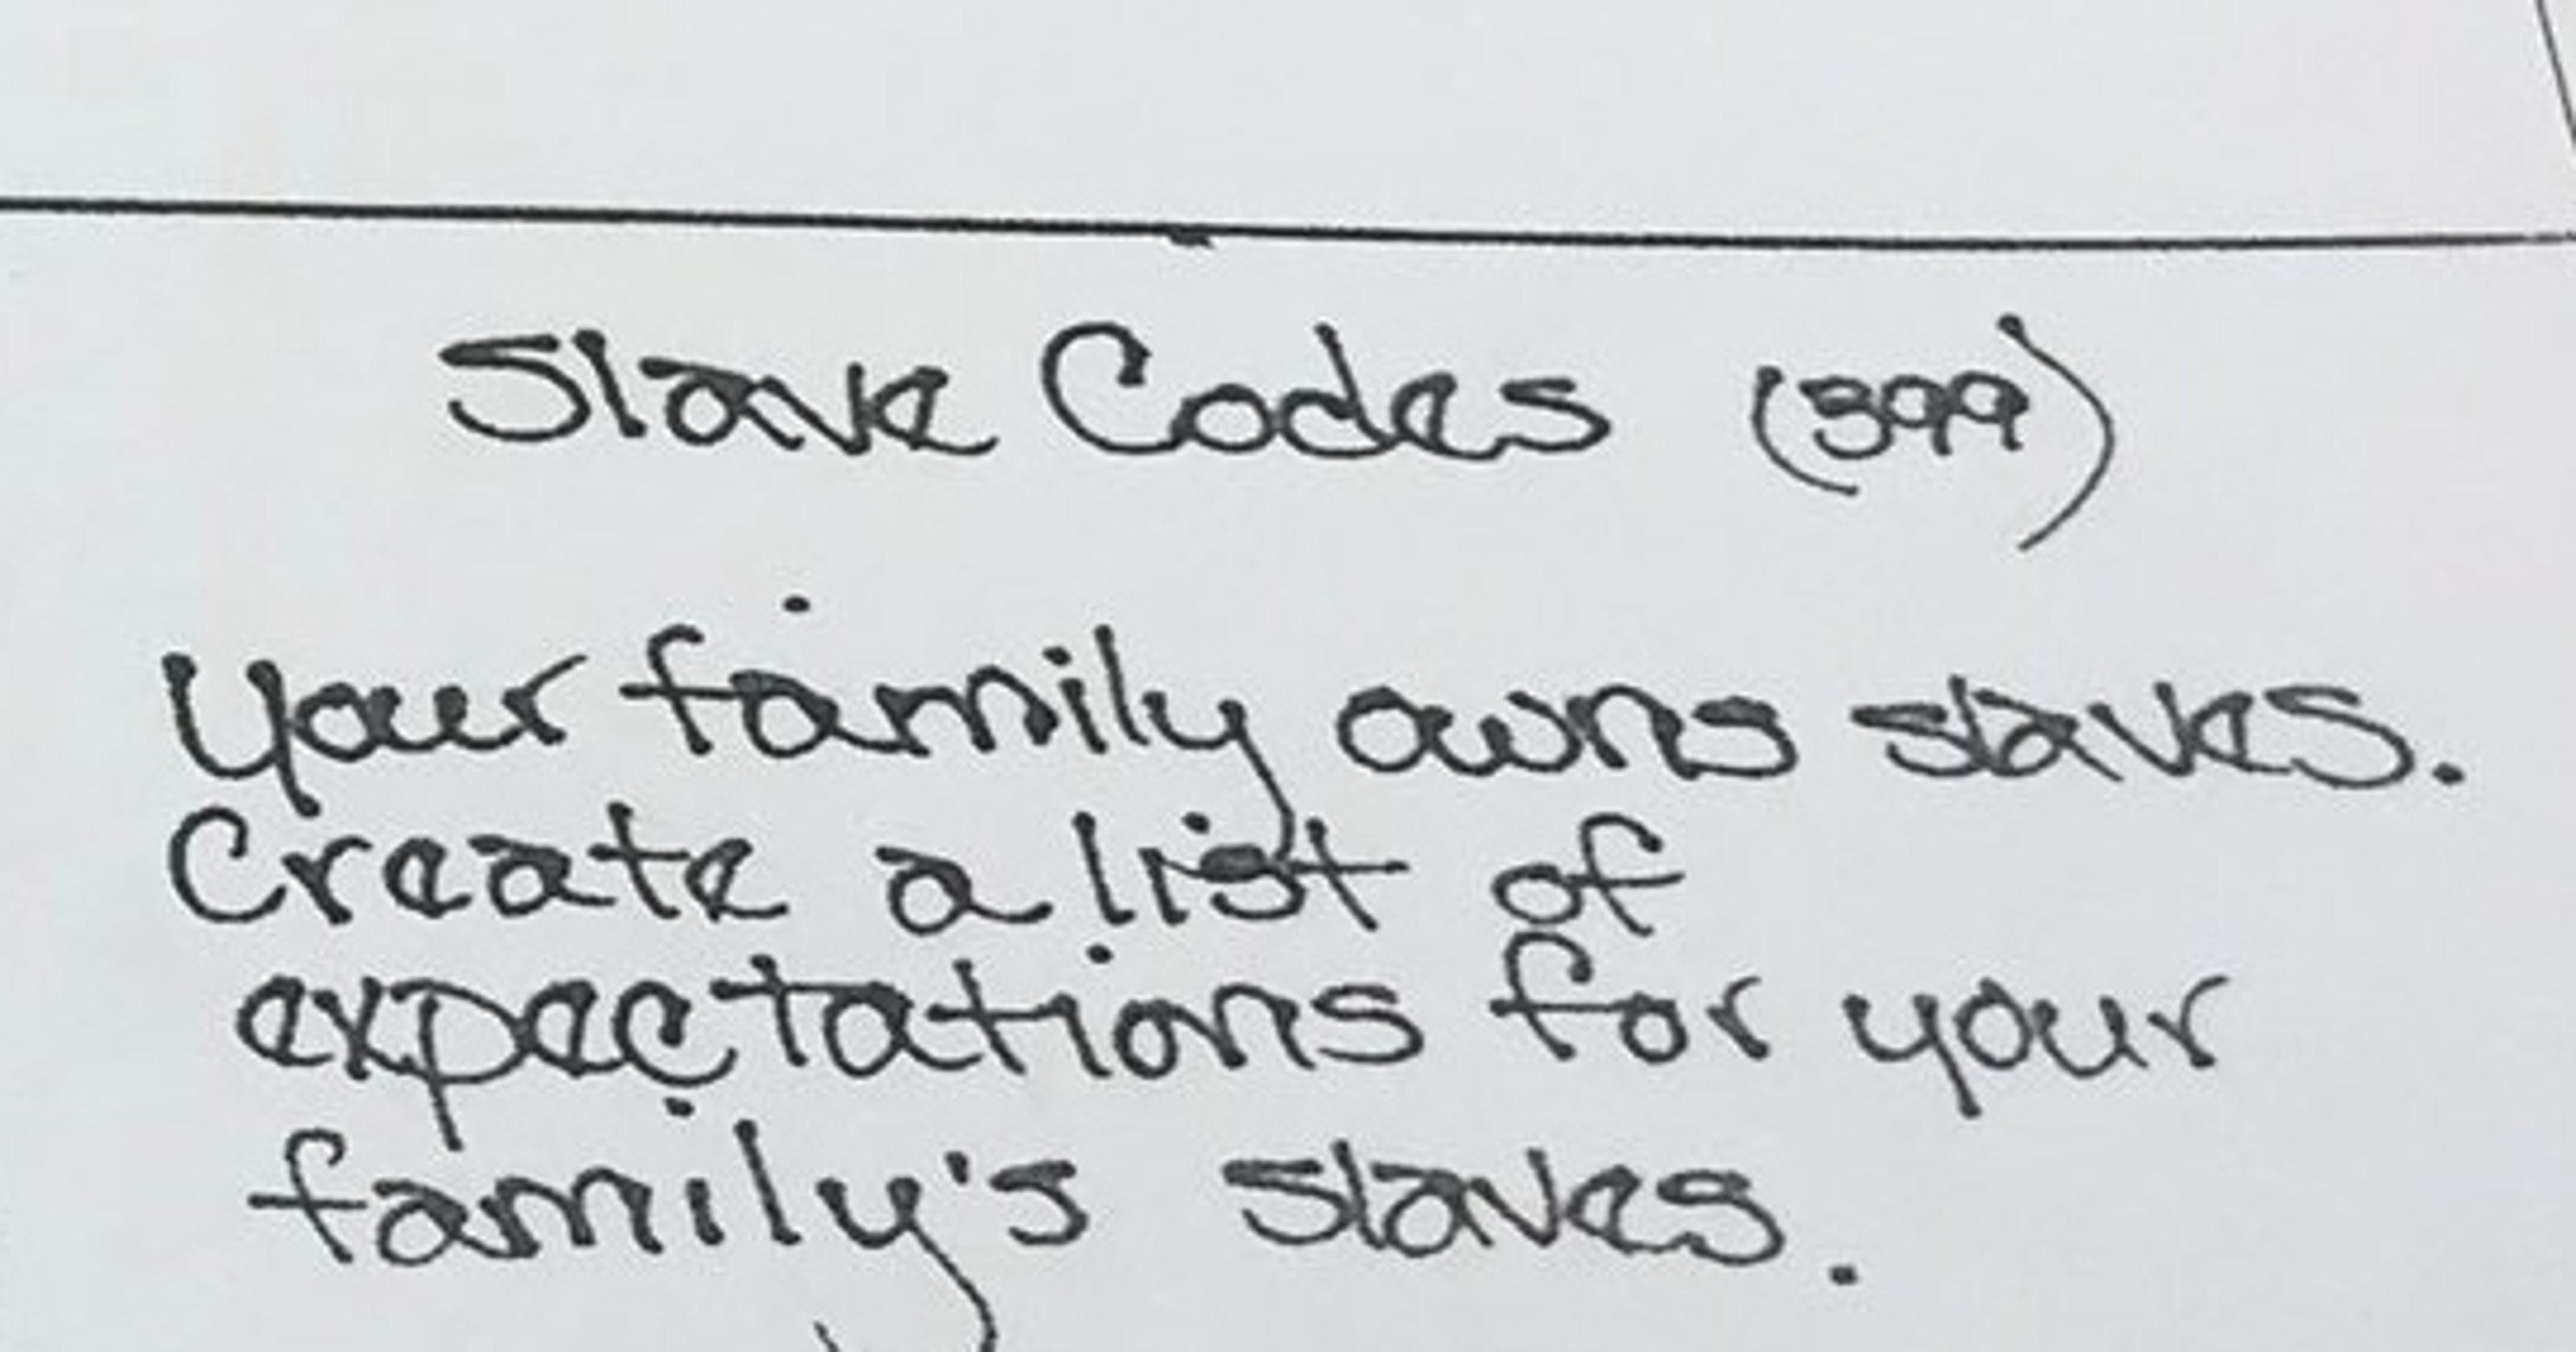 Slave Codes (399)
Your family owns slaves.
Create a list of
expectations for your
family's slaves.